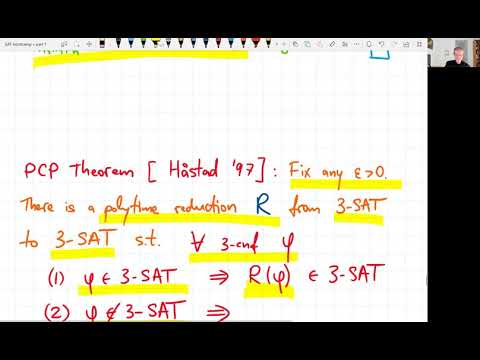 SAT bootcamp – part 1
PCP Theorem [Håstad '97]: Fix any ε>0.
There is a polytime reduction R from 3-SAT
to 3-SAT s.t. ∀ 3-cnf φ
(1) φ ∈ 3-SAT ⇒ R(φ) ∈ 3-SAT
(2) φ ∉ 3-SAT ⇒